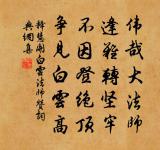 偉哉大法師
逢難轉堅牢
不因登絕頂
爭見白雲高
釋慧開白雲法師贊詞
典網集